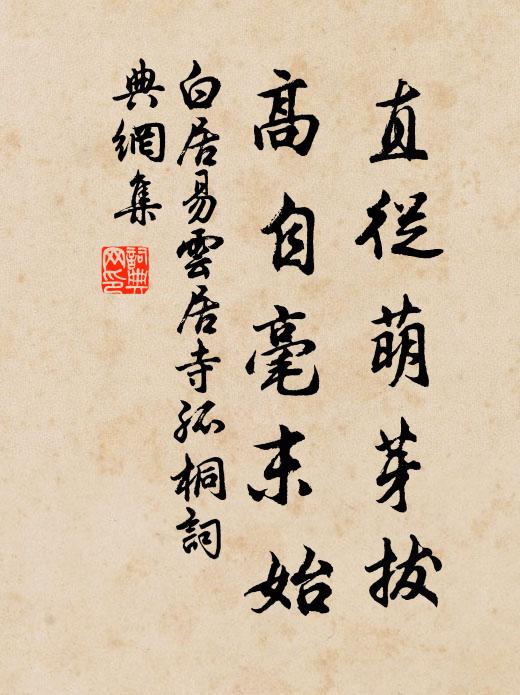 直從萌芽拔
高自毫末始
白居易雲居寺孤桐詞
典網集
詞典網印